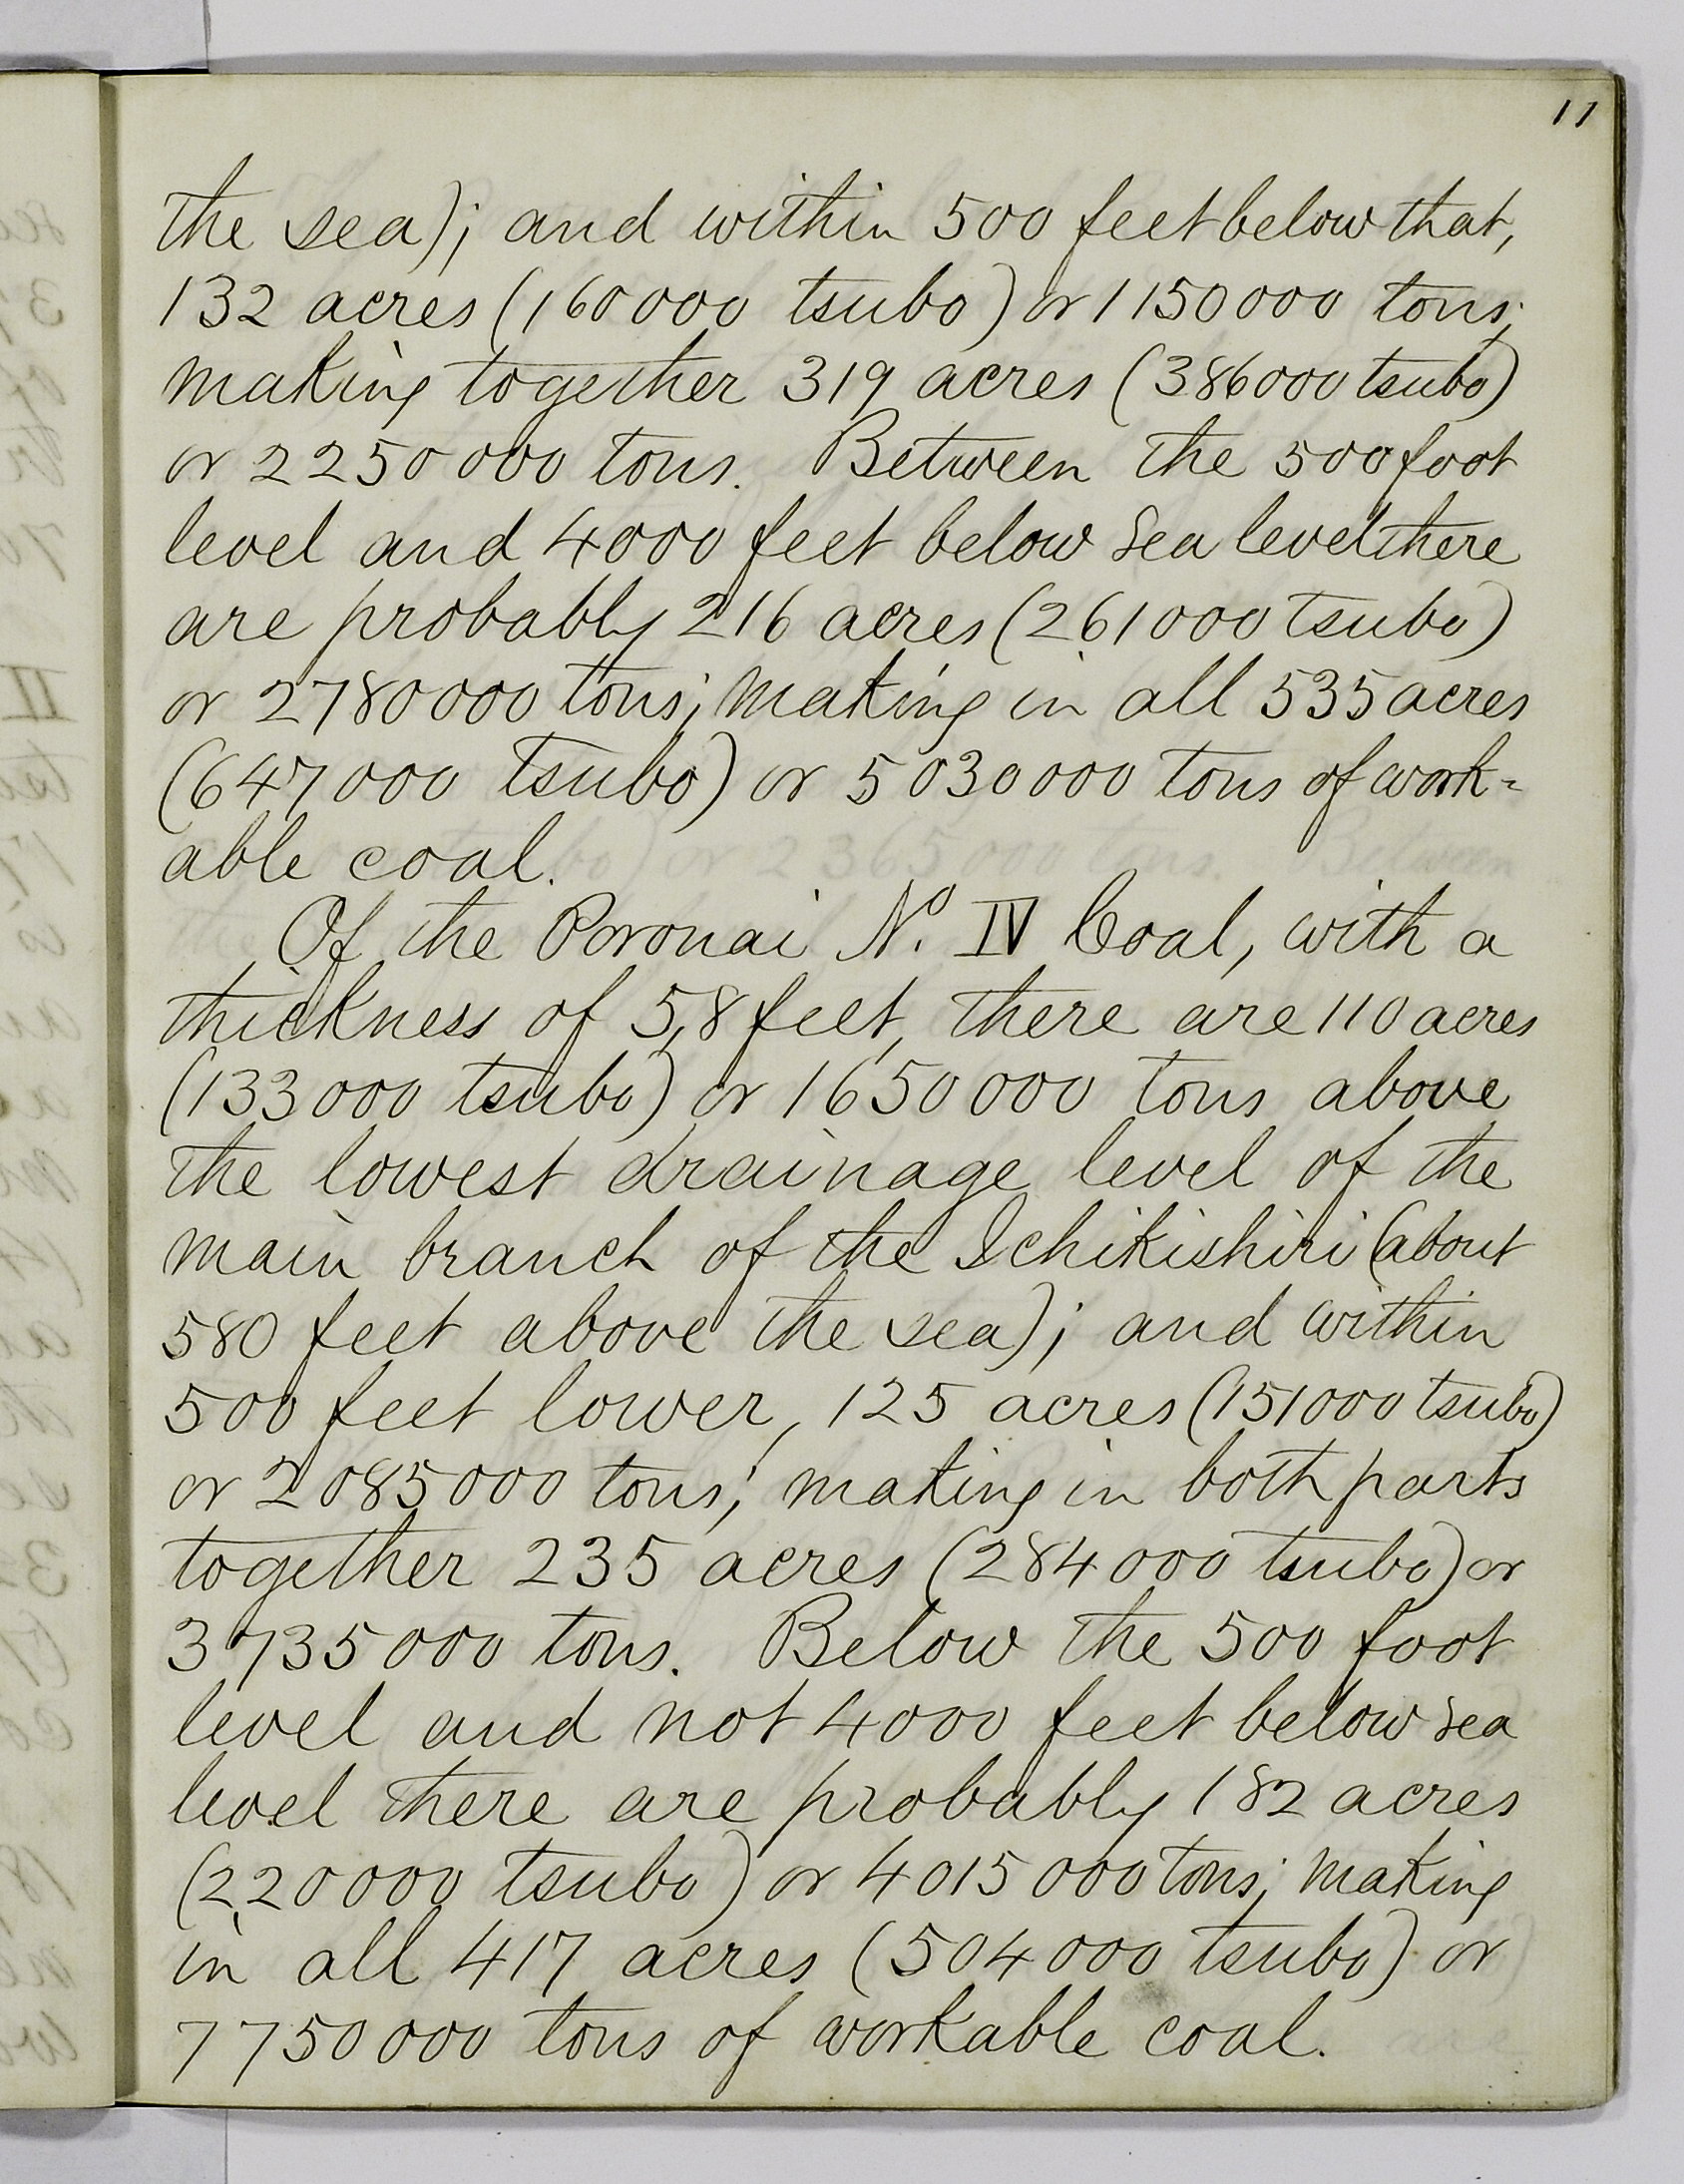 11
the sea); and within 500 feet below that,
132 acres (160000 tsubo) or 1150000 tons;
making together 319 acres (386000 tsubo)
or 2250000 tons. Between the 500 foot
level and 4000 feet below sea level there
are probably 216 acres (261000 tsubo)
or 2780000 tons; making in all 535 acres
(647000 tsubo) or 5030000 tons of work-
able coal.
Of the Poronai No. IV Coal, with a
thickness of 5,8 feet, there are 110 acres
(133000 tsubo) or 1650000 tons above
the lowest drainage level of the
main branch of the Ichikishiri (about
580 feet above the sea); and within
500 feet lower, 125 acres (151000 tsubo)
or 2085000 tons; making in both parts
together 235 acres (284000 tsubo) or
3735000 tons. Below the 500 foot
level and not 4000 feet below sea
level there are probably 182 acres
(220000 tsubo) or 4015000 tons; making
in all 417 acres (504000 tsubo) or
7750000 tons of workable coal.